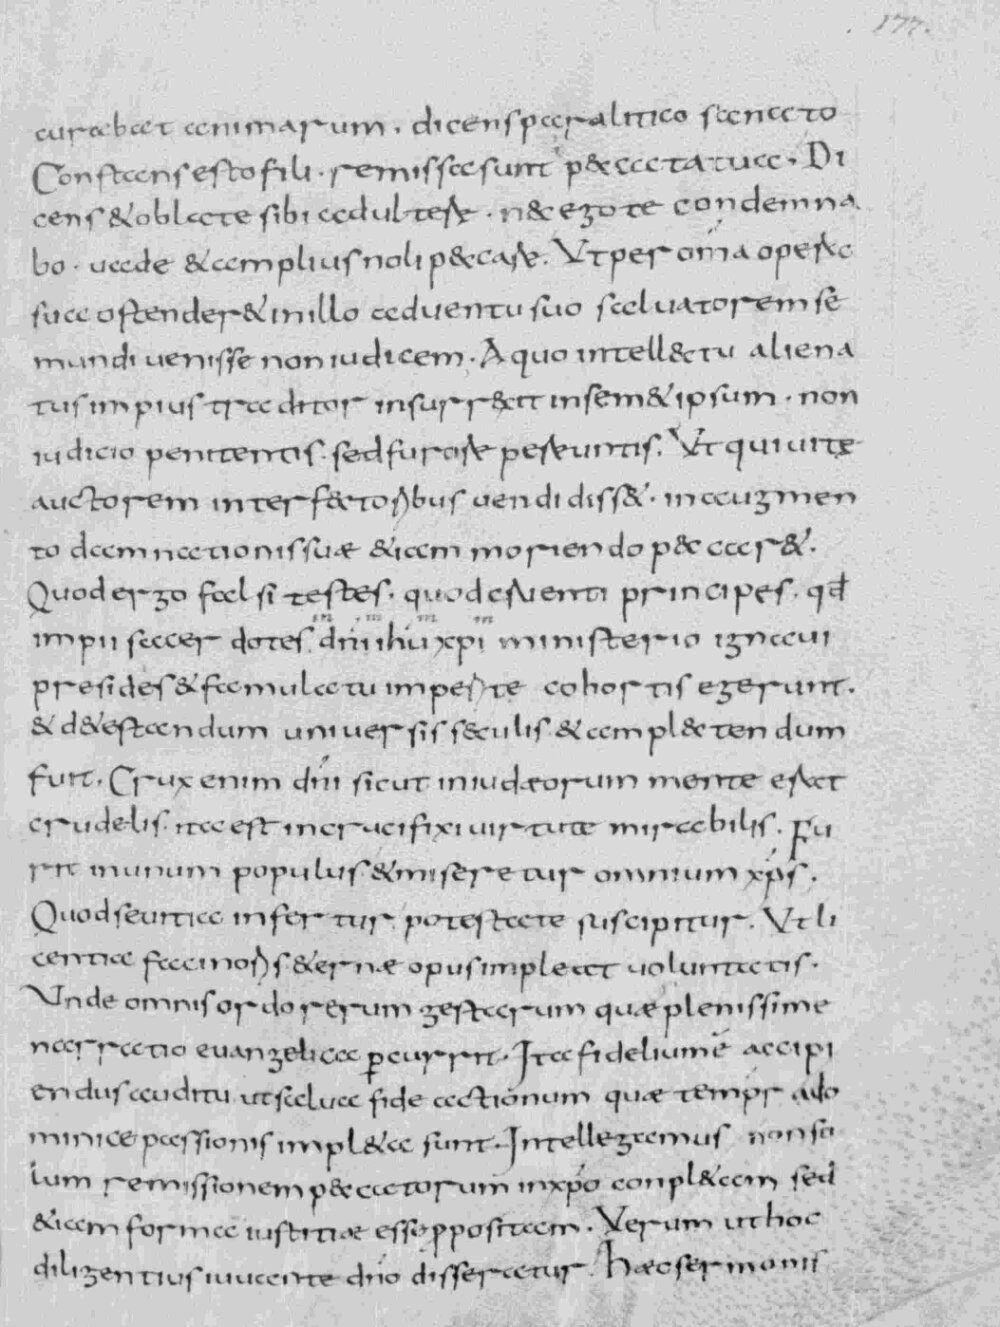 177.
curabat animarum. dicens paralitico sanato
Constans esto fili. remissa sunt p&cata tua. Di
cens & oblate sibi adulterae. n& ego te condemna
bo. uade & amplius noli p&care. Ut per om̅a opera
sua ostender& in illo aduentu suo saluatorem se
mundi uenisse non iudicem. A quo intell&tu aliena
tus impius traditor insurr&it in sem&ipsum. non
iudicio penitentis. sed furore pereuntis. Ut qui uite
auctorem interf&toribus uendidiss&. in augmen
to damnationis suæ &iam moriendo p&ccar&.
Quod ergo falsi testes. quod cruenti principes. qđ
impii sacerdotes. dn̅i ihu̅ xpi̅ ministerio ignaui
presides & famulatu imperite cohortis egerunt.
& d&estandum uniuersis sæculis & ampl&tendum
fuit. Crux enim dn̅i sicut in iudæorum mente erat
crudelis. ita est in crucifixi uirtute mirabilis. Fu
rit in unum populus & miseretur omnium xps̅.
Quod seuitia infertur. potestate suscipitur. Ut li
centia facinoris &ernæ opus impleat uoluntatis.
Unde omnis ordo rerum gestarum quæ plenissime
narratio euangelica ꝑcurrit. Ita fidelium ē accipi
endus auditu ut salua fide actionum quæ tempr̅ ado
minice passionis impl&a sunt. Intellegamus non so
lum remissionem p&catorum in xp̅o conpl&am sed
&iam forma iustitiæ esse ꝓpositam. Verum ut hoc
diligentius iuuante dn̅o disseratur. Hæc sermonis